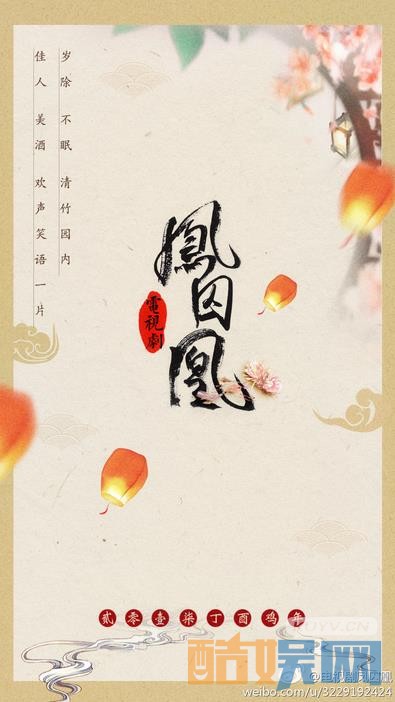 岁除 不眠 清竹园内
佳人 美酒 欢声笑语一片
鳳囚凰
電視劇
贰零壹柒丁酉鸡年
酷娱网
@电视剧凤囚凰
weibo.com/u/3229192424